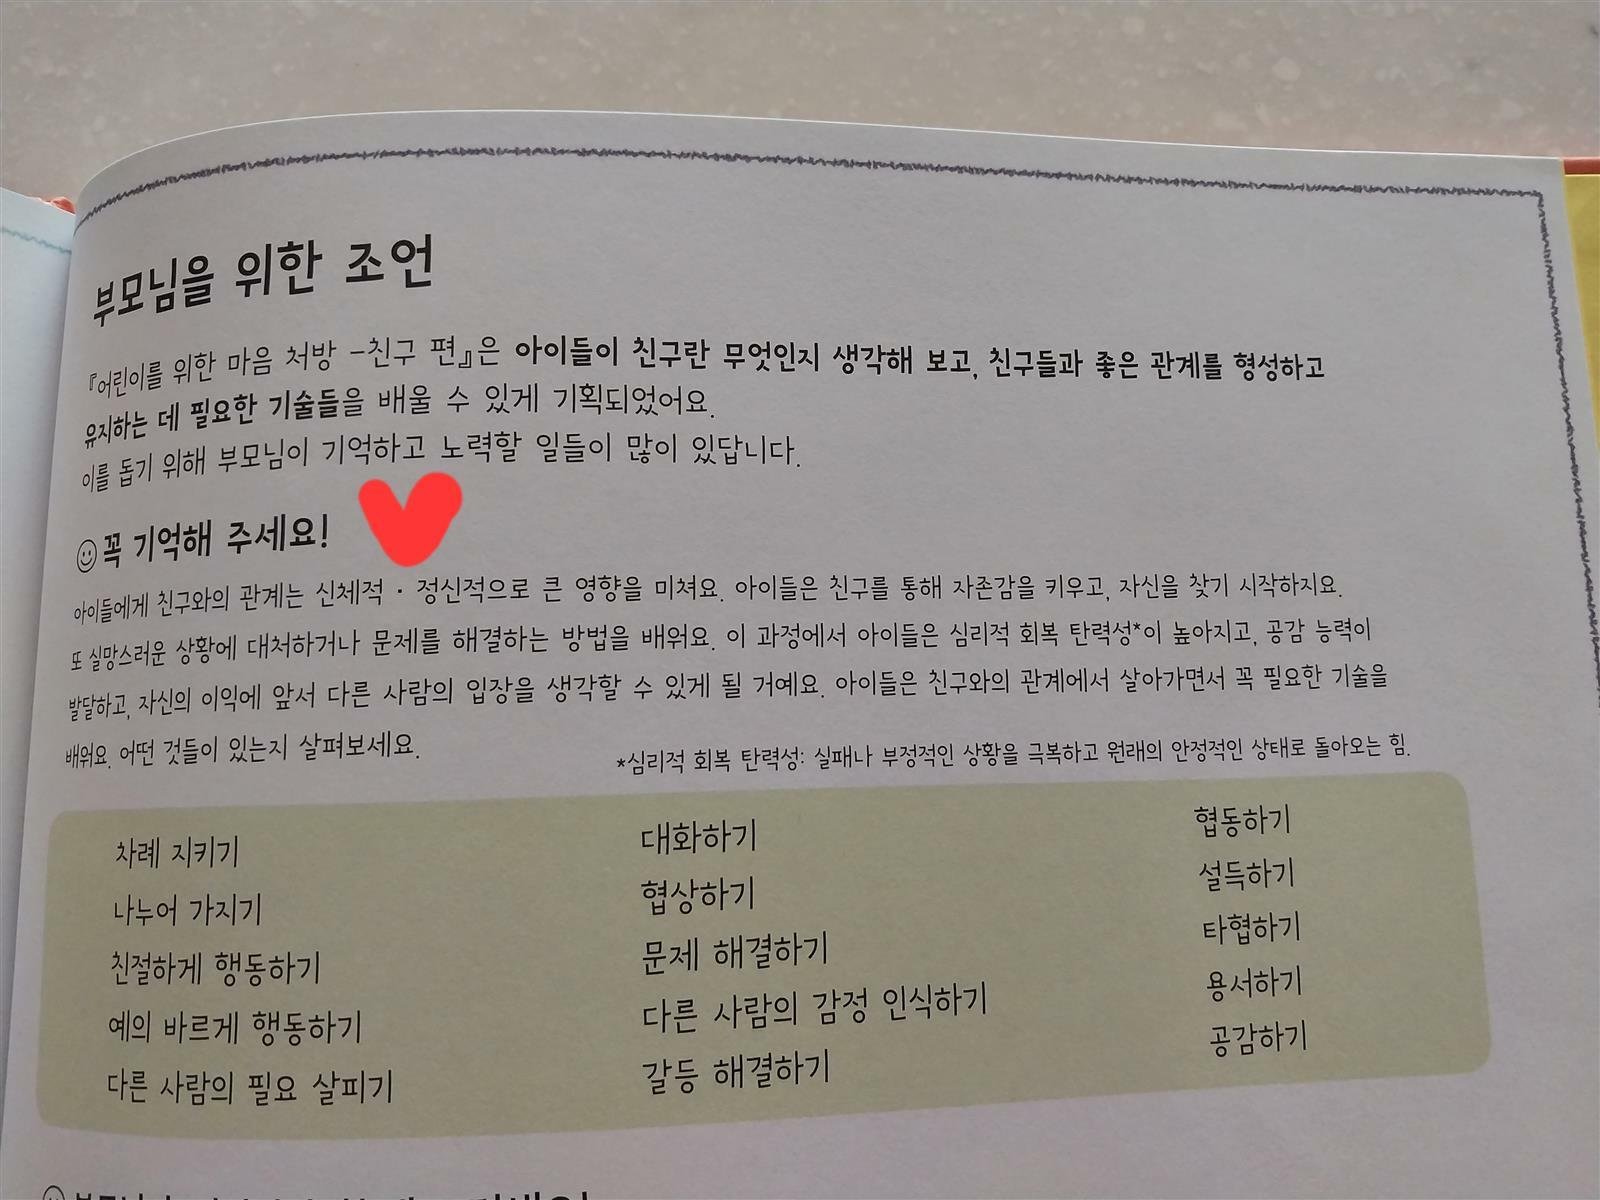 부모님을 위한 조언
『어린이를 위한 마음 처방 -친구 편』은 아이들이 친구란 무엇인지 생각해 보고, 친구들과 좋은 관계를 형성하고
유지하는 데 필요한 기술들을 배울 수 있게 기획되었어요.
이를 돕기 위해 부모님이 기억하고 노력할 일들이 많이 있답니다.
꼭 기억해 주세요!
아이들에게 친구와의 관계는 신체적 · 정신적으로 큰 영향을 미쳐요. 아이들은 친구를 통해 자존감을 키우고, 자신을 찾기 시작하지요.
또 실망스러운 상황에 대처하거나 문제를 해결하는 방법을 배워요. 이 과정에서 아이들은 심리적 회복 탄력성*이 높아지고, 공감 능력이
발달하고, 자신의 이익에 앞서 다른 사람의 입장을 생각할 수 있게 될 거예요. 아이들은 친구와의 관계에서 살아가면서 꼭 필요한 기술을
배워요. 어떤 것들이 있는지 살펴보세요.
*심리적 회복 탄력성: 실패나 부정적인 상황을 극복하고 원래의 안정적인 상태로 돌아오는 힘.
차례 지키기
나누어 가지기
친절하게 행동하기
예의 바르게 행동하기
다른 사람의 필요 살피기
대화하기
협상하기
문제 해결하기
다른 사람의 감정 인식하기
갈등 해결하기
협동하기
설득하기
타협하기
용서하기
공감하기